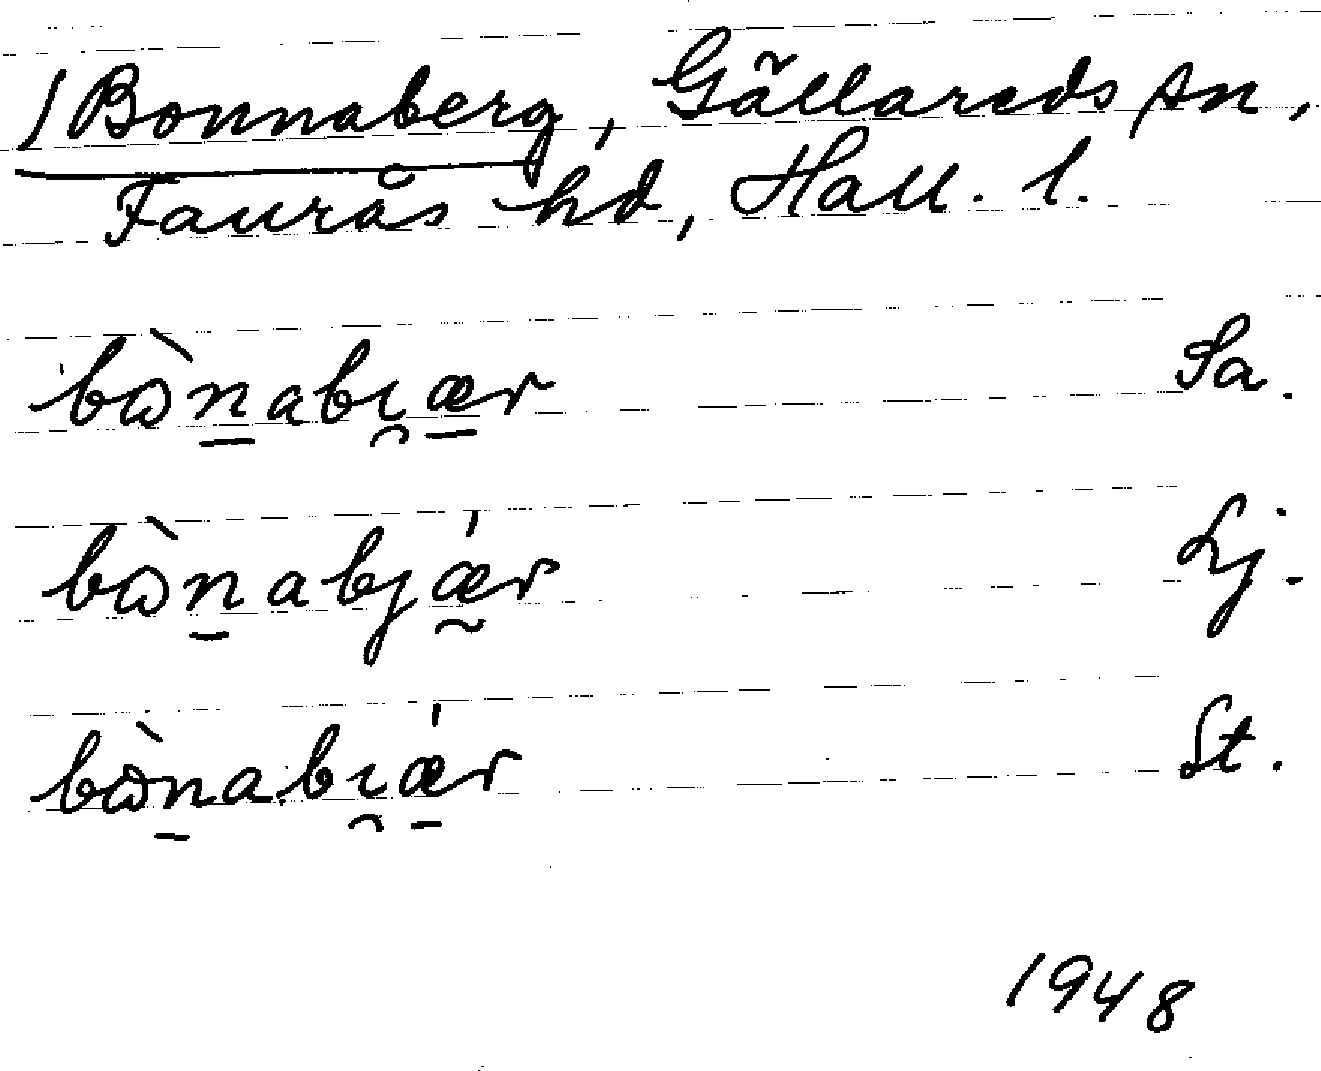 / Bonnaberg, Gällareds sn,
Faurås hd, Hall. l.
bὼn̲abı̯æ̲r Sa.
bὼn̲abjǽ̰r Lj.
bὼn̲abı̯ǽ̲r St.
1948